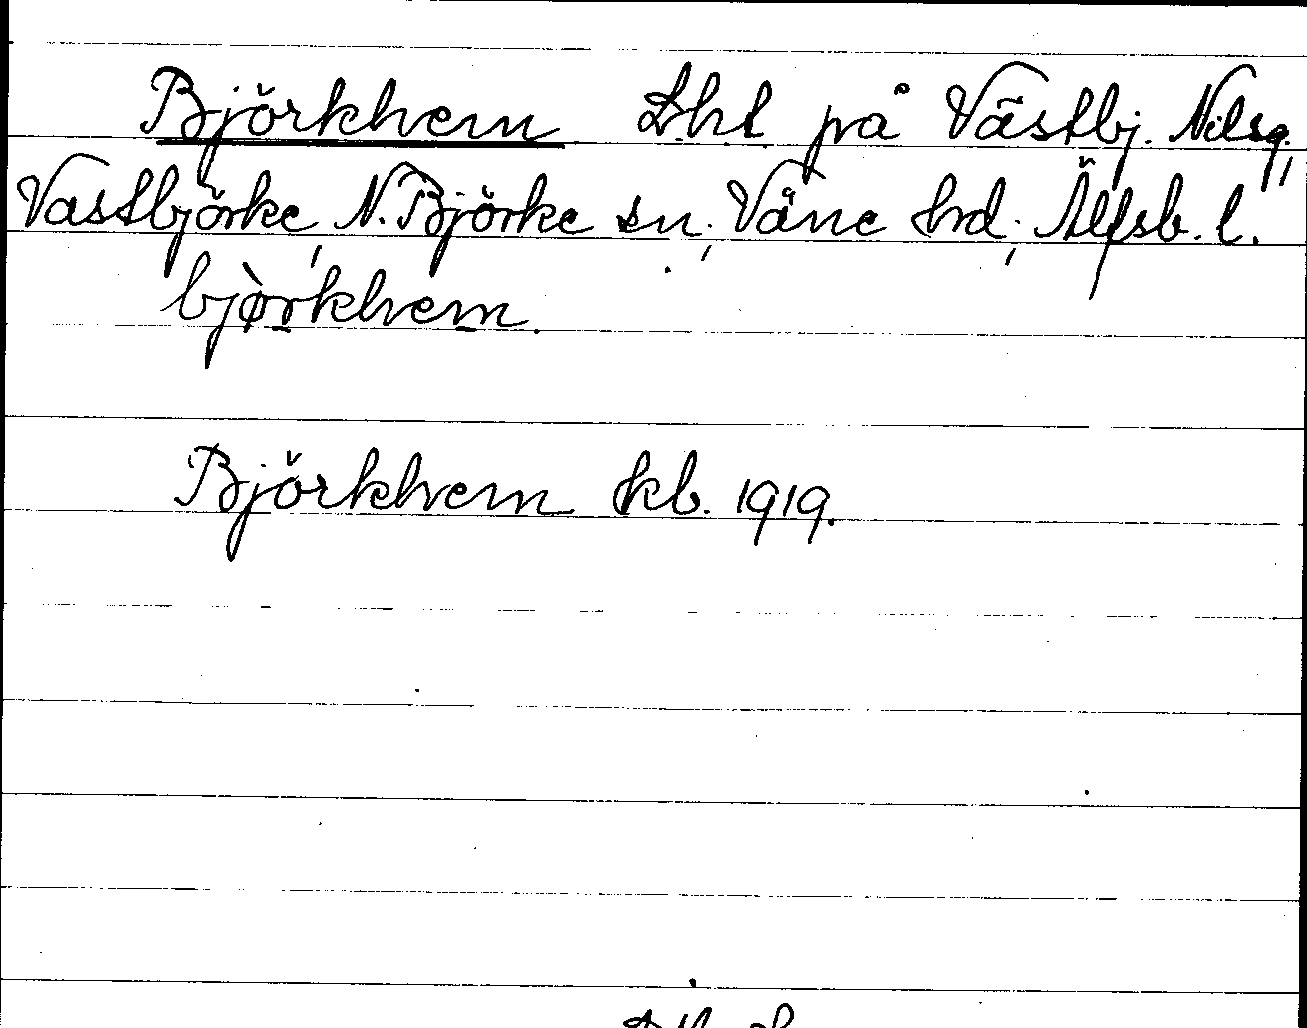 Björkhem Lht på Västbj. Nilsg.,
Västbjörke, N. Björke sn, Väne hrd, Älfsb. l.
bjòrkhem.
Björkhem kb. 1919.